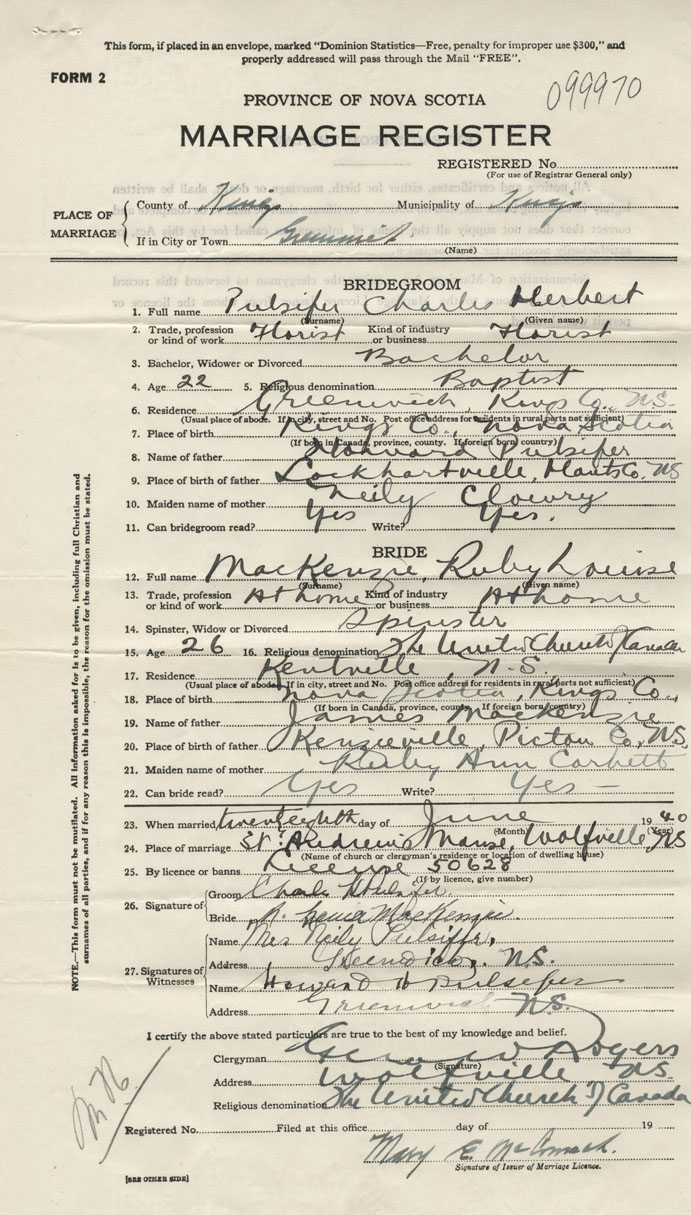 This form, if placed in an envelope, marked "Dominion Statistics—Free, penalty for improper use $300," and
properly addressed will pass through the Mail "FREE".
FORM 2
099970
PROVINCE OF NOVA SCOTIA
MARRIAGE REGISTER
REGISTERED No.
(For use of Registrar General only)
PLACE OF MARRIAGE
County of Kings Municipality of Kings
If in City or Town
(Name)
BRIDEGROOM
1. Full name Pulsifer Charles Herbert
(Surname) (Given name)
2. Trade, profession or kind of work Florist Kind of industry or business Florist
3. Bachelor, Widower or Divorced Bachelor
4. Age 22 5. Religious denomination Baptist
6. Residence Greenwich, Kings Co., N.S.
(Usual place of abode. If in city, street and No. Post office address for residents in rural parts not sufficient)
7. Place of birth Kings Co., Nova Scotia
(If born in Canada, province, county. If foreign born, country)
8. Name of father Howard Pulsifer
9. Place of father Lockhartville, Hants Co. NS
10. Maiden name of mother Neily
11. Can bridegroom read? Yes Write? Yes.
BRIDE
12. Full name MacKenzie, Ruby Louise
(Surname) (Given name)
13. Trade, profession or kind of work At home Kind of industry or business At home
14. Spinster, Widow or Divorced Spinster
15. Age 26 16. Religious denomination The United Church of Canada
17. Residence Kentville, N.S.
(Usual place of abode. If in city, street and No. Post office address for residents in rural parts not sufficient)
18. Place of birth Nova Scotia, Kings Co.,
(If born in Canada, province, county. If foreign born, country)
19. Name of father James MacKenzie
20. Place of birth of father Kenzieville, Pictou Co., N.S.
21. Maiden name of mother Ann Corbett
22. Can bride read? Yes Write? Yes —
23. When married twenty eighth day of June 1940
(Month) (Year)
24. Place of marriage St. Andrew's Manse, Wolfville, NS
(Name of church or clergyman's residence or location of dwelling house)
25. By licence or banns License 50628
(If by licence, give number)
26. Signature of
Groom Charles H Pulsifer.
Bride R. Louise MacKenzie.
27. Signatures of Witnesses
Name Mrs Neily Pulsiffer,
Address Greenwich, N.S.
Name Howard H Pulsifer
Address Greenwich N.S.
I certify the above stated particulars are true to the best of my knowledge and belief.
Clergyman Rogers
(Signature)
Address Wolfville N.S.
Religious denomination The United Church of Canada
Registered No. Filed at this office day of 19
Mary E. McCormack.
Signature of Issuer of Marriage Licence.
[SEE OTHER SIDE]
NOTE.—This form must not be mutilated. All information asked for is to be given, including full Christian and
surnames of all parties, and if for any reason this is impossible, the reason for the omission must be stated.